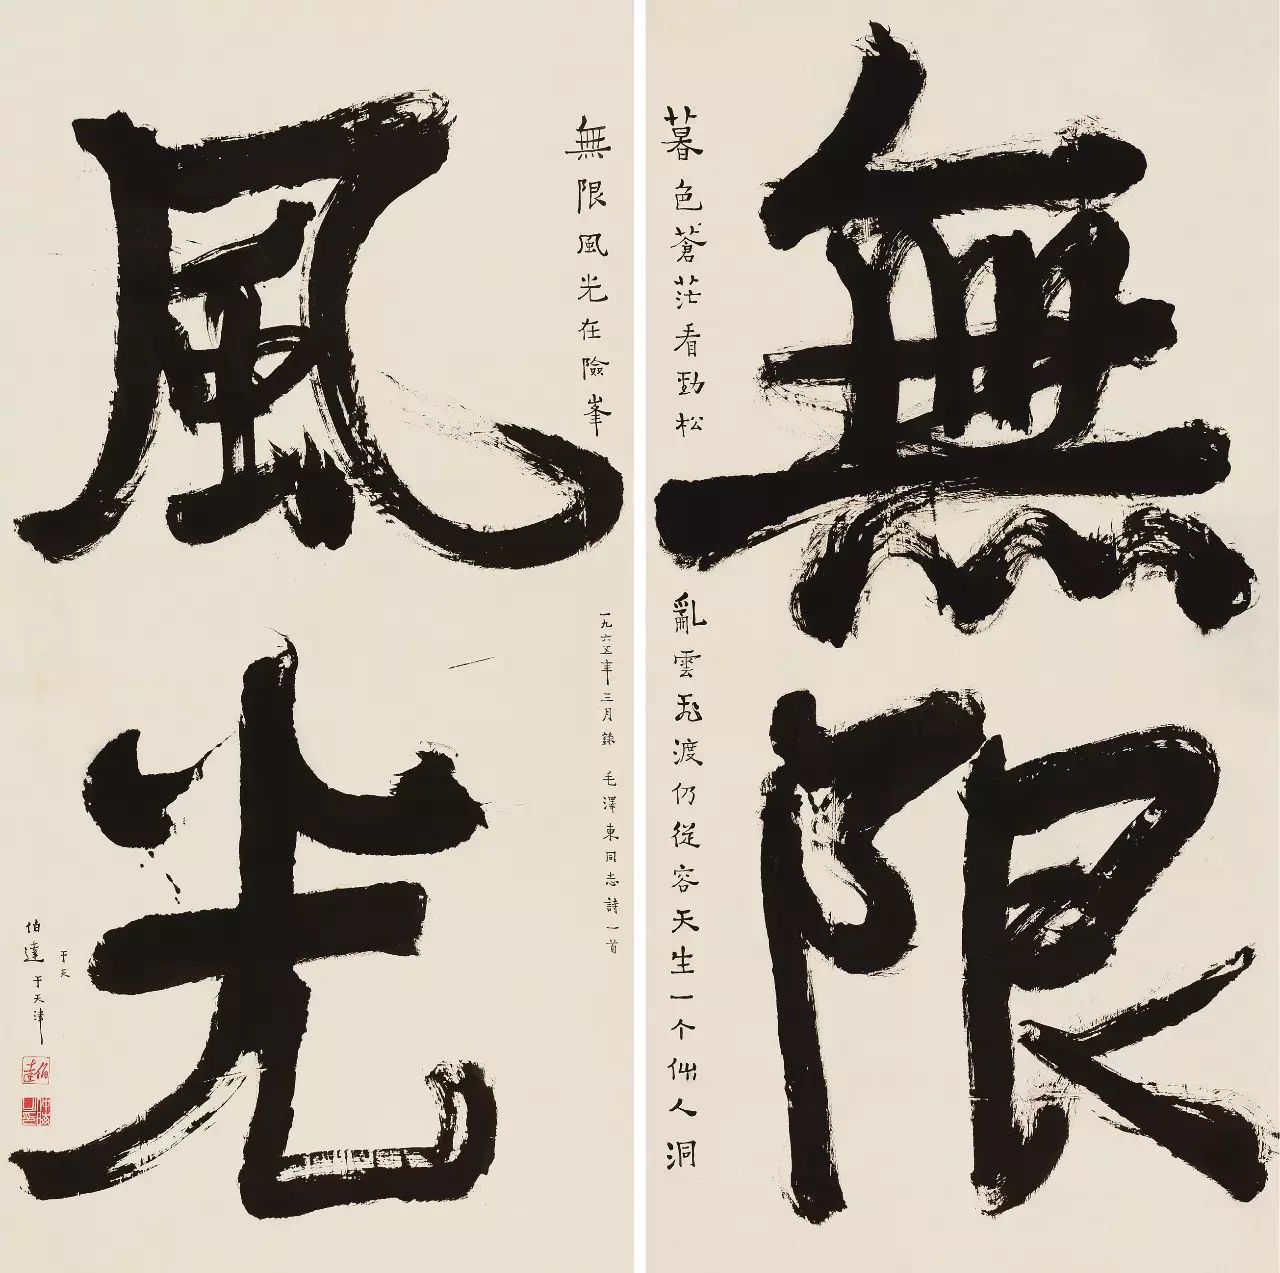 無限
暮色蒼茫看勁松
亂雲飛渡仍從容天生一个仙人洞
無限風光在險峯
一九六五年三月錄 毛澤東同志詩一首
風光
于天
伯達于天津
伯達